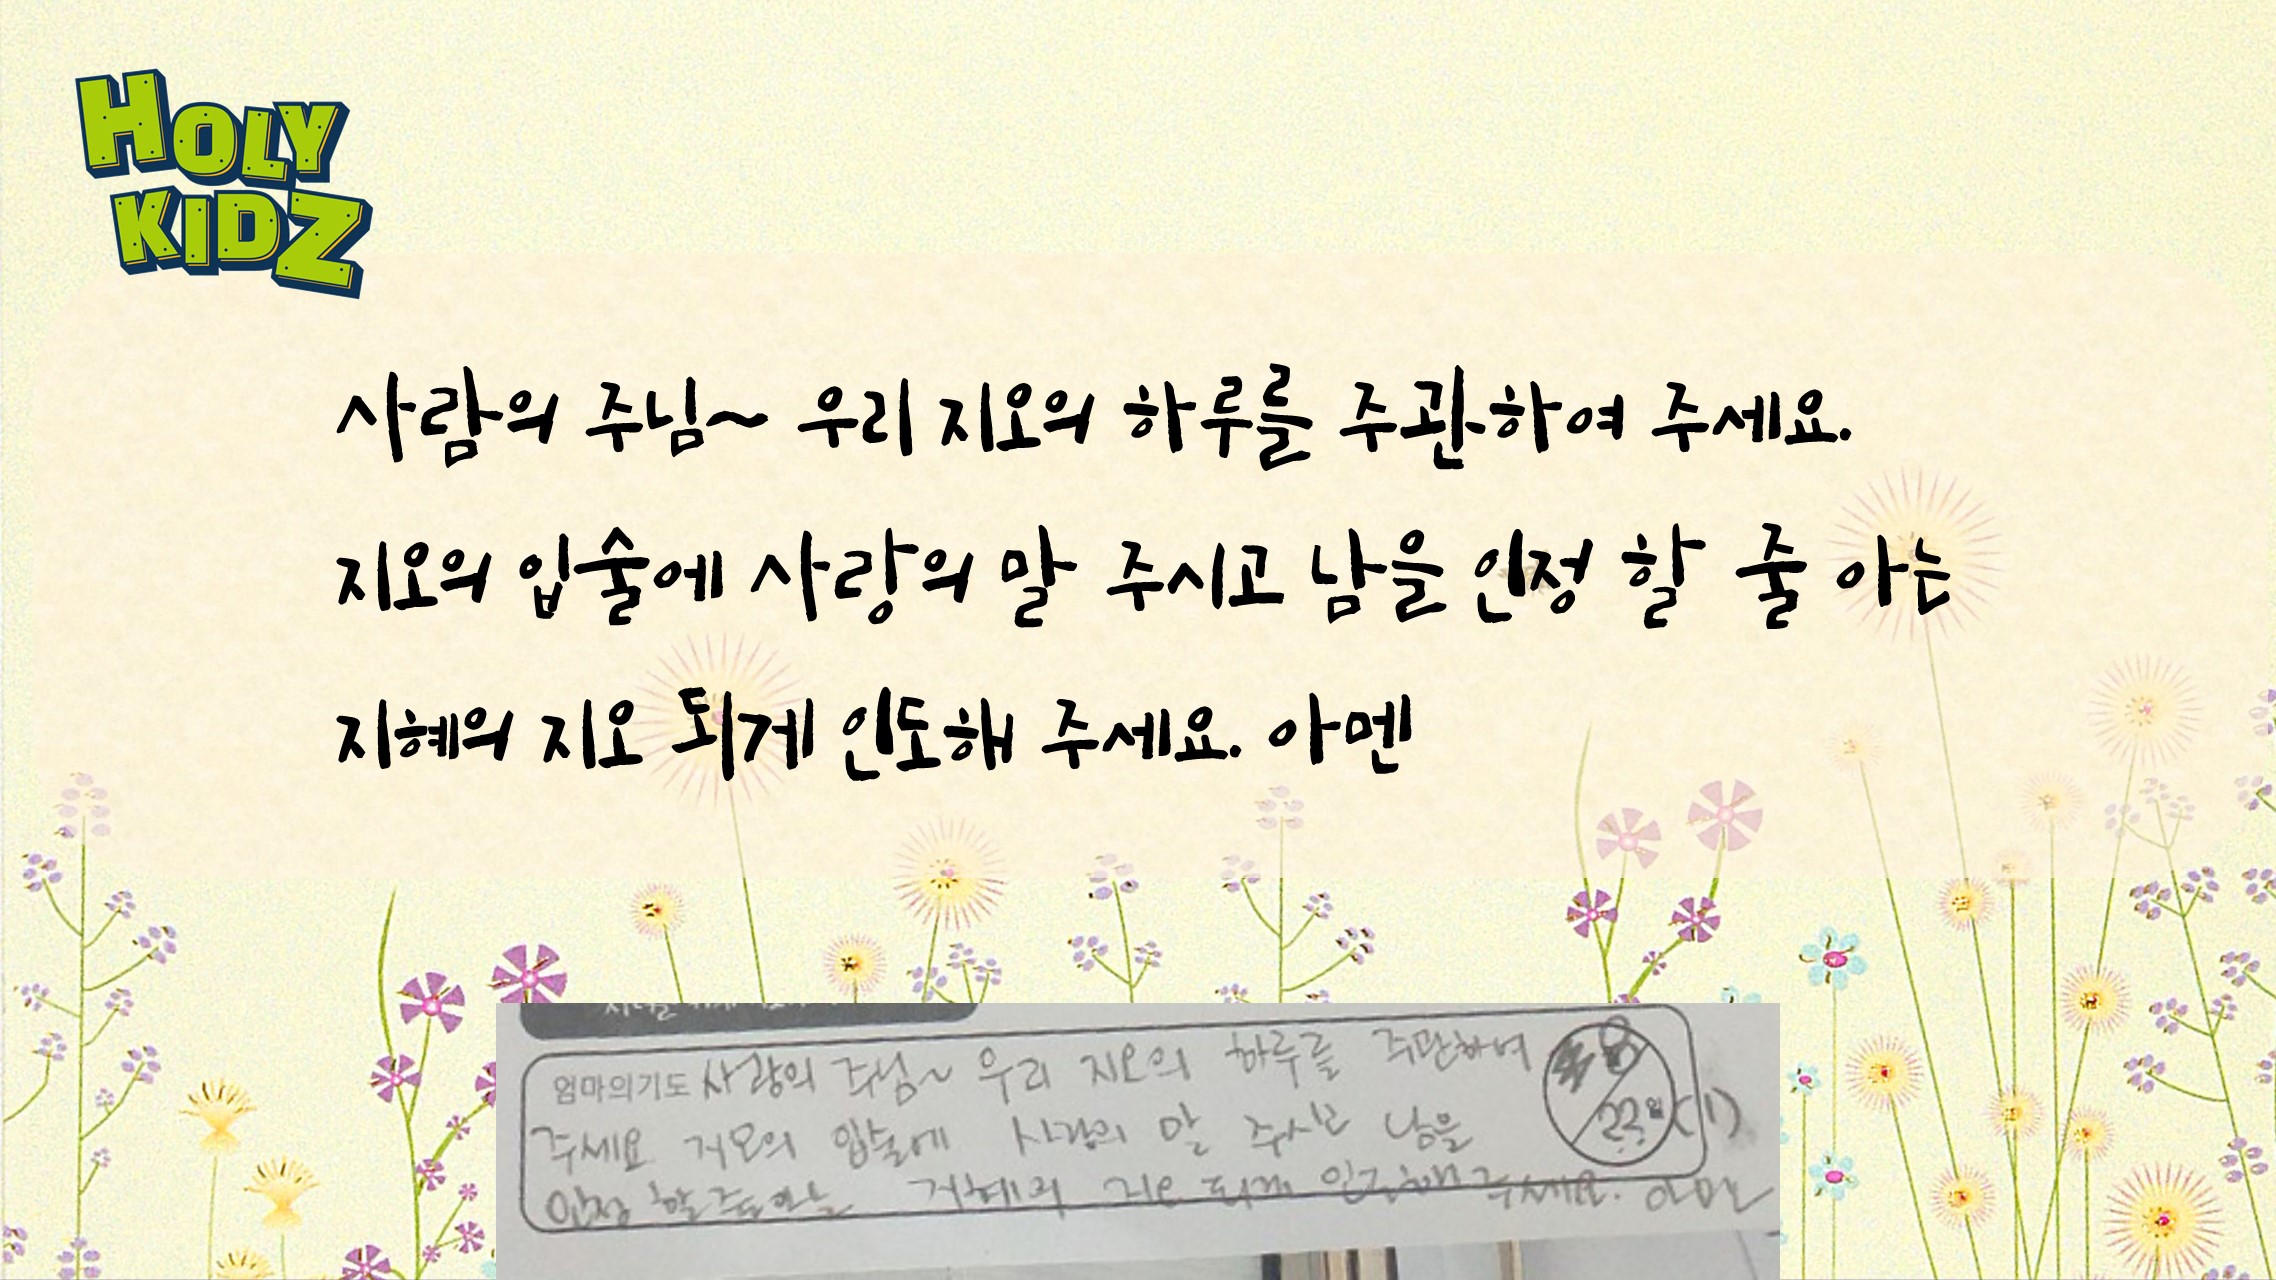 HOLY
KIDZ
사람의 주님~ 우리 지오의 하루를 주관하여 주세요.
지오의 입술에 사랑의 말 주시고 남을 인정 할 줄 아는
지혜의 지오 되게 인도해 주세요. 아멘
엄마의기도 사랑의 주님~ 우리 지오의 하루를 주관하여
주세요 지오의 입술에 사랑의 말 주시고 남을
23일 (1)
인정 할 줄 아는 지혜의 지오 되게 인도해 주세요. 아멘